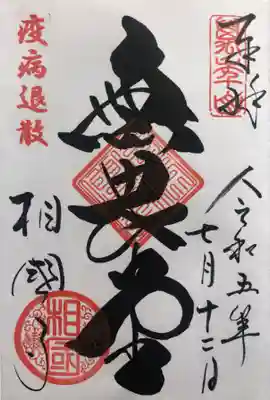 奉拝
令和五年
七月十二日
無畏堂
疫病退散
相國寺